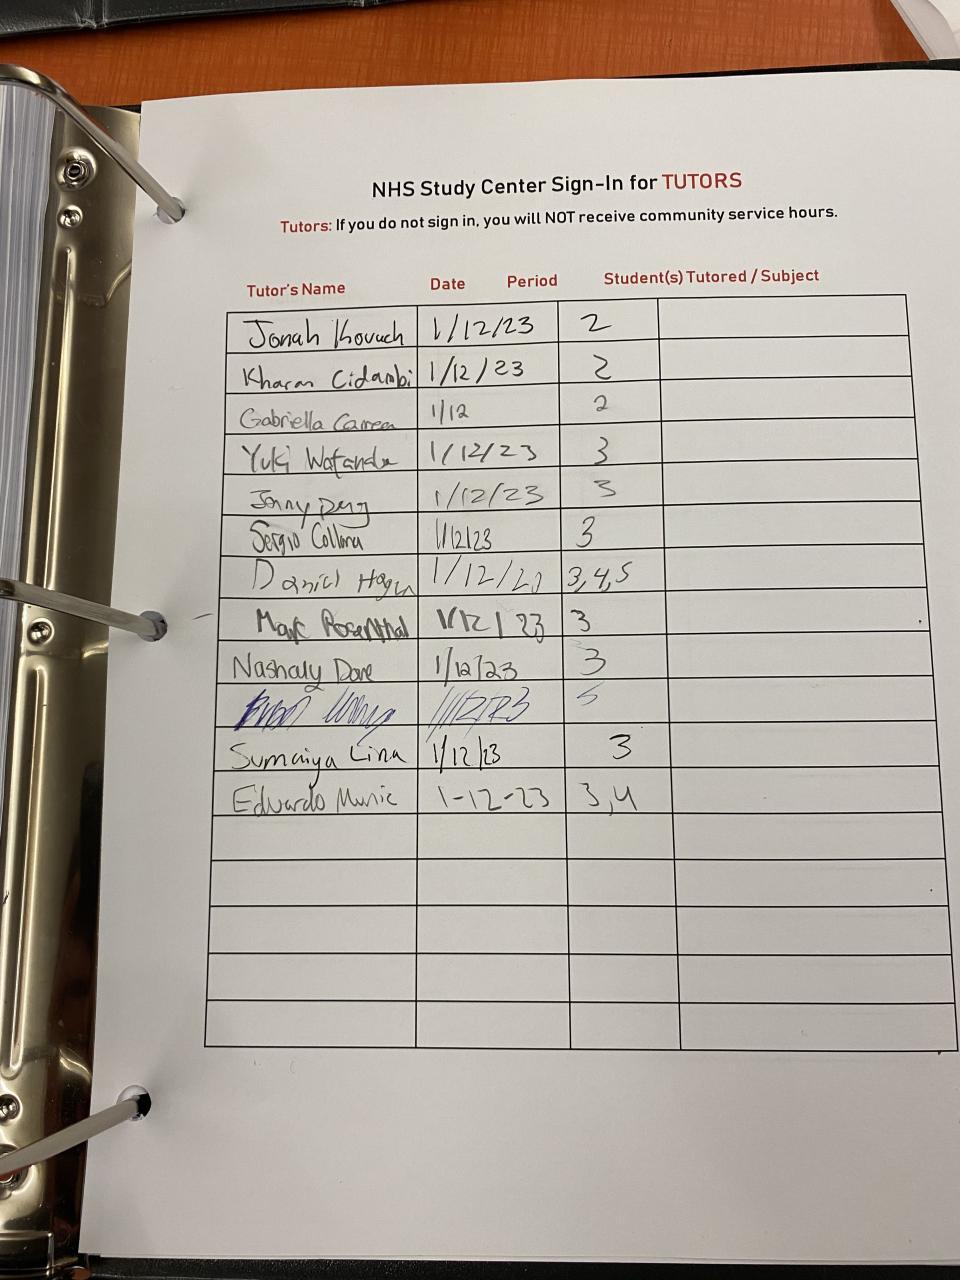 NHS Study Center Sign-In for TUTORS
Tutors: If you do not sign in, you will NOT receive community service hours.
Tutor's Name Date Period Student(s) Tutored / Subject
Jonah Kovach 1/12/23 2
Kharan Cidambi 1/12/23 2
Gabriella 1/12 2
Yuki Watanabe 1/12/23 3
Jenny 1/12/23 3
Sergio 1/12/23 3
Daniel Hogan 1/12/23 3,4,5
Mark Rosenthal 1/12/23 3
Nashaly 1/12/23 3
1/12/23 5
Sumaiya Lina 1/12/23 3
Eduardo 1-12-23 3,4